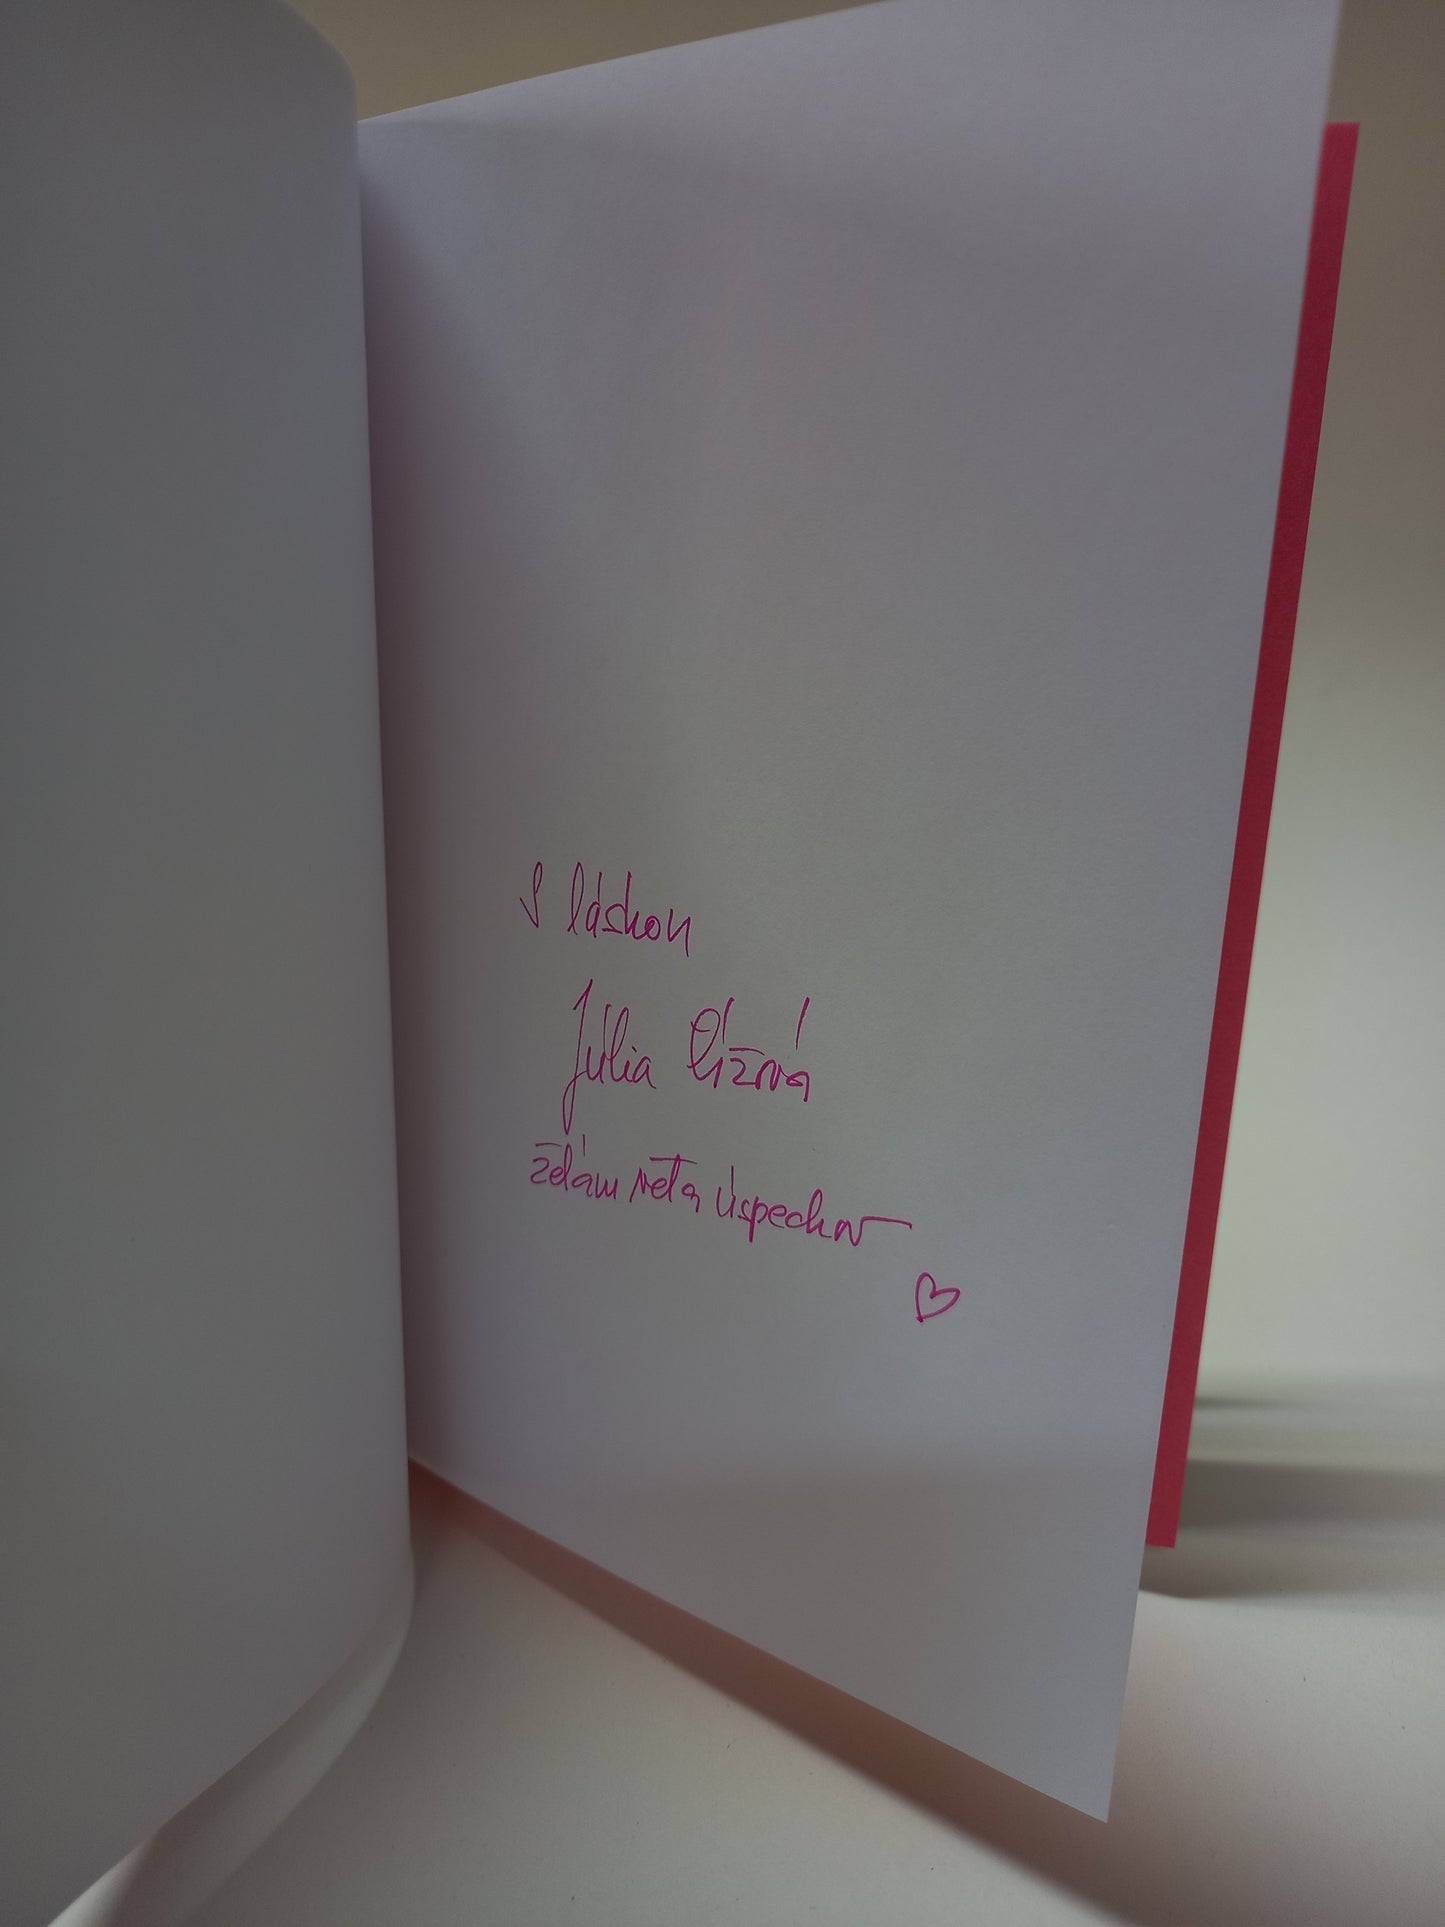 S láskou
Júlia
želám veľa úspechov